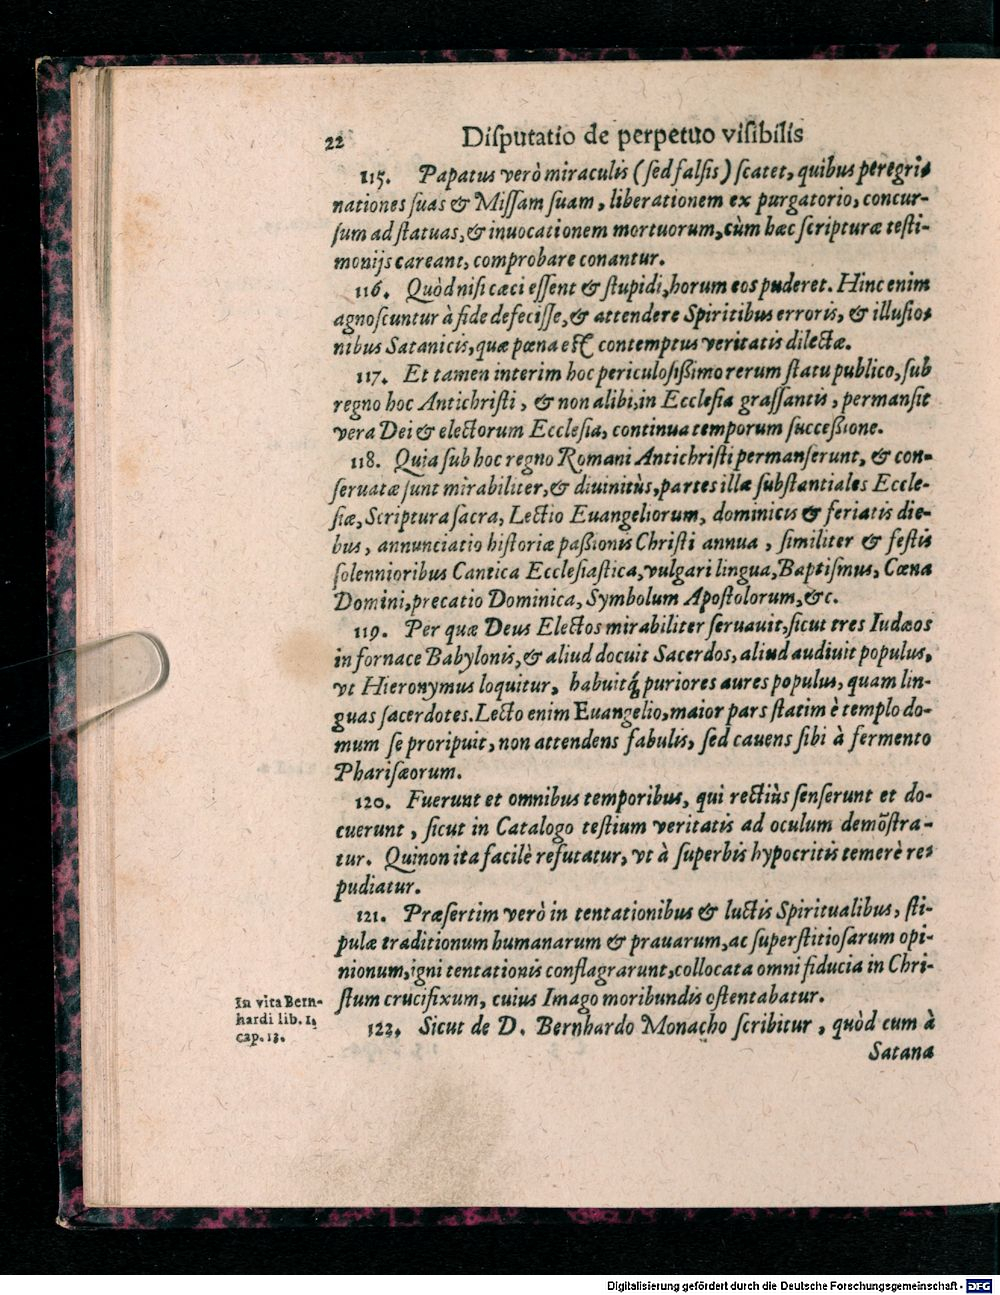 22 Diſputatio de perpetuo viſibilis
115. Papatus verò miraculis (ſed falſis) ſcatet, quibus peregri-
nationes ſuas & Miſſam ſuam, liberationem ex purgatorio, concur-
ſum ad ſtatuas, & inuocationem mortuorum, cùm hæc ſcripturæ teſti-
monijs careant, comprobare conantur.
116. Quòd niſi cæci eſſent & ſtupidi, horum eos puderet. Hinc enim
agnoſcuntur à fide defeciſſe, & attendere Spiritibus erroris, & illuſio-
nibus Satanicis, quæ pœna eſt contemptus veritatis dilectæ.
117. Et tamen interim hoc periculoſißimo rerum ſtatu publico, ſub
regno hoc Antichriſti, & non alibi, in Eccleſia graſſantis, permanſit
vera Dei & electorum Eccleſia, continua temporum ſucceßione.
118. Quia ſub hoc regno Romani Antichriſti permanſerunt, & con-
ſeruatæ ſunt mirabiliter, & diuinitùs, partes illæ ſubſtantiales Eccle-
ſiæ, Scriptura ſacra, Lectio Euangeliorum, dominicis & feriatis die-
bus, annunciatio hiſtoriæ paßionis Chriſti annua, ſimiliter & feſtis
ſolennioribus Cantica Eccleſiaſtica, vulgari lingua, Baptiſmus, Cœna
Domini, precatio Dominica, Symbolum Apoſtolorum, &c.
119. Per quæ Deus Electos mirabiliter ſeruauit, ſicut tres Iudæos
in fornace Babylonis, & aliud docuit Sacerdos, aliud audiuit populus,
vt Hieronymus loquitur, habuitq́; puriores aures populus, quam lin-
guas ſacerdotes. Lecto enim Euangelio, maior pars ſtatim è templo do-
mum ſe proripuit, non attendens fabulis, ſed cauens ſibi à fermento
Phariſæorum.
120. Fuerunt et omnibus temporibus, qui rectiùs ſenſerunt et do-
cuerunt, ſicut in Catalogo teſtium veritatis ad oculum demõſtra-
tur. Qui non ita facilè refutatur, vt à ſuperbis hypocritis temerè re-
pudiatur.
121. Præſertim verò in tentationibus & luctis Spiritualibus, ſti-
pulæ traditionum humanarum & prauarum, ac ſuperſtitioſarum opi-
nionum, igni tentationis conflagrarunt, collocata omni fiducia in Chri-
ſtum crucifixum, cuius Imago moribundis oſtentabatur.
In vita Bern-
hardi lib. 1.
cap. 13.
122. Sicut de D. Bernhardo Monacho ſcribitur, quòd cum à
Satana
Digitalisierung gefördert durch die Deutsche Forschungsgemeinschaft - DFG